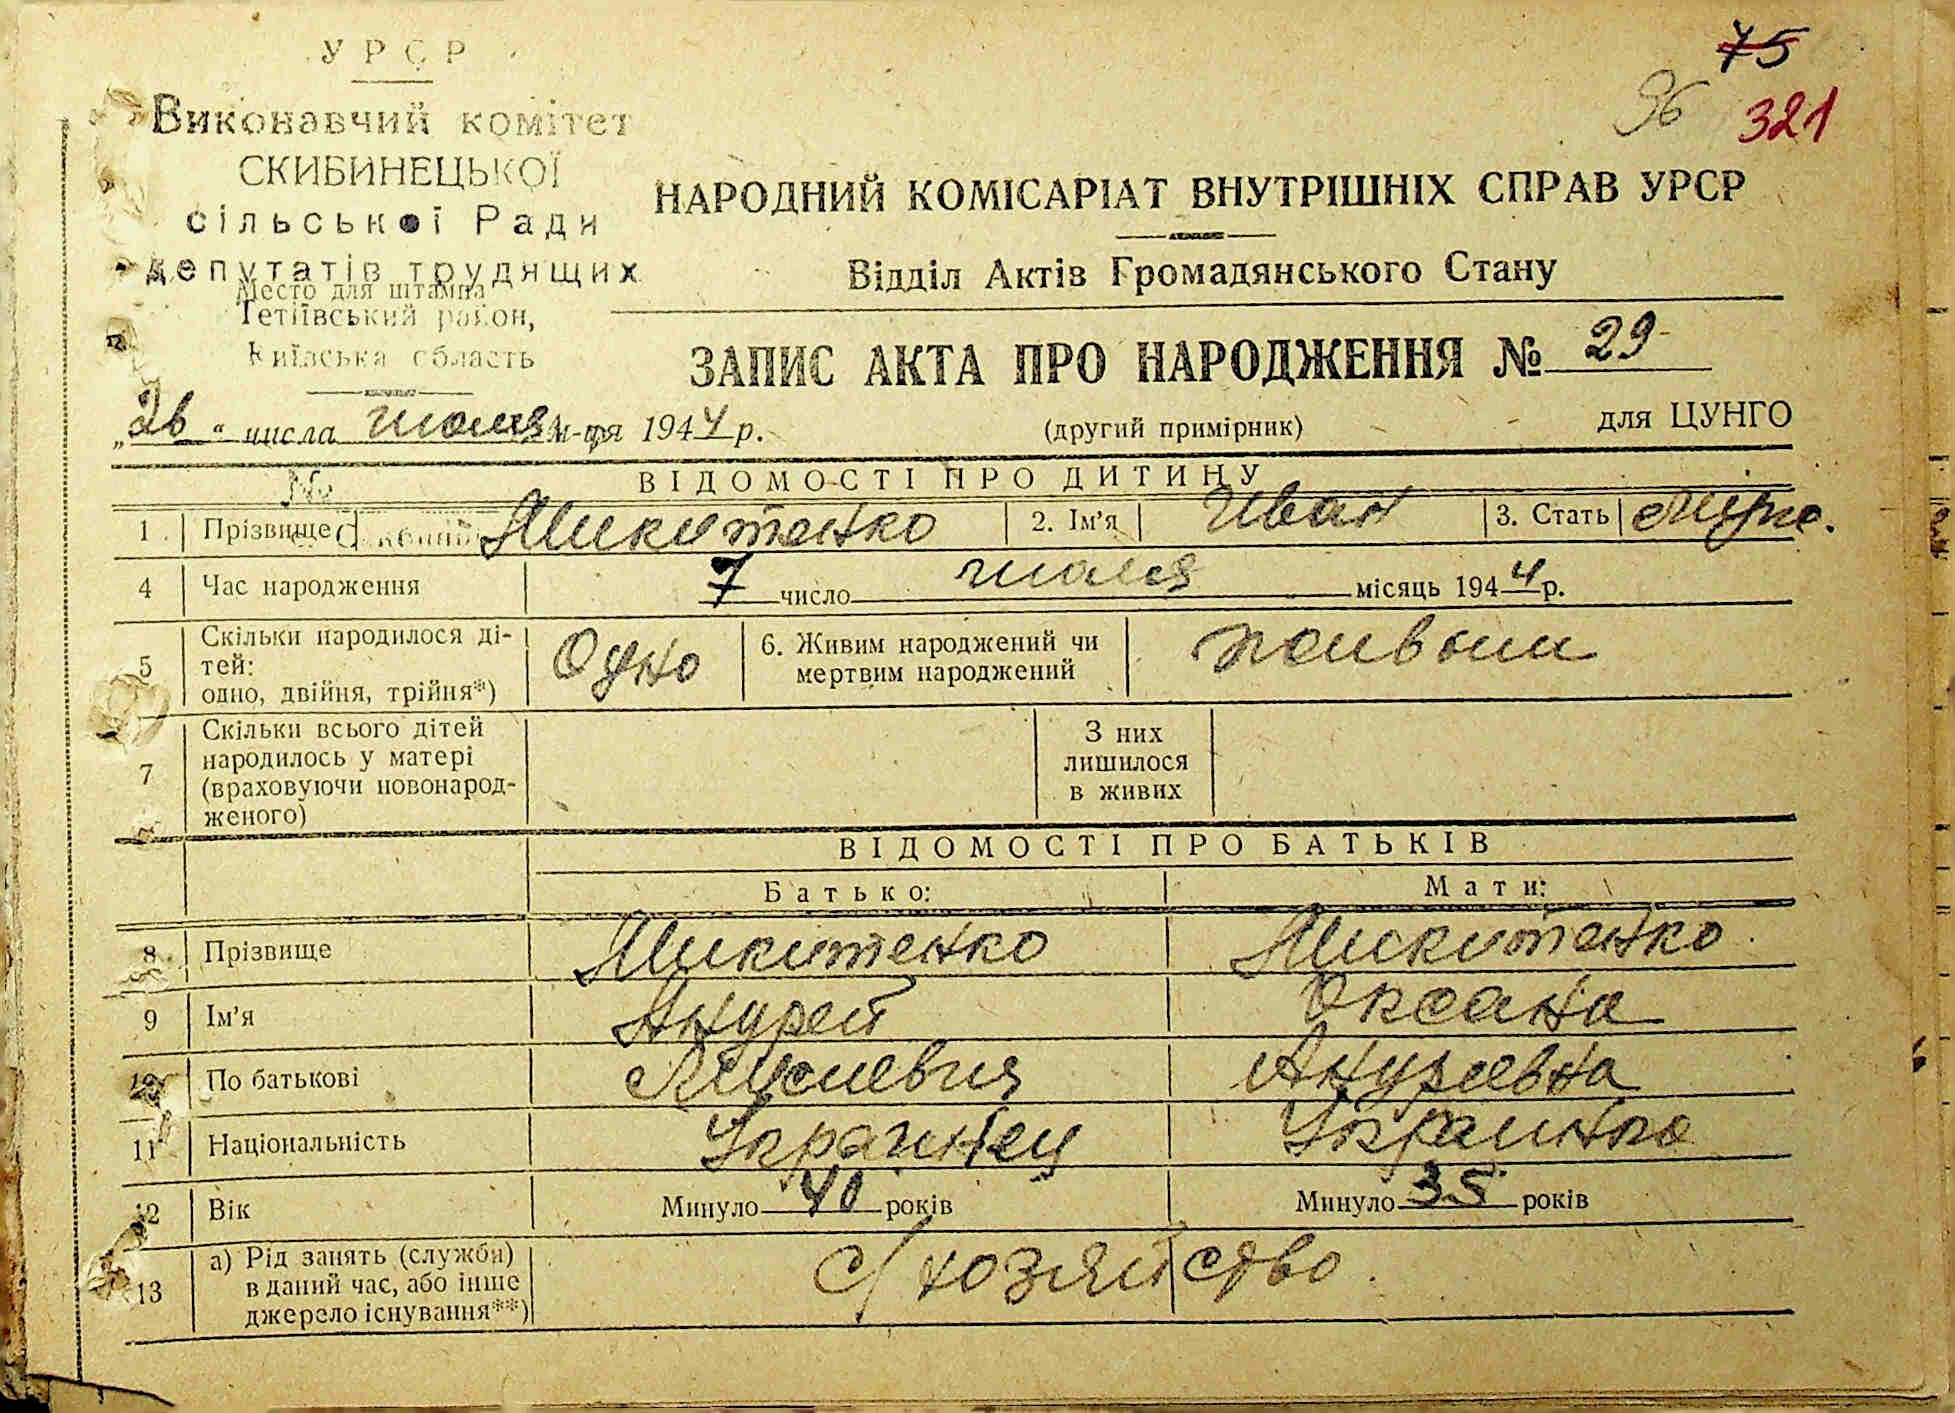 УРСР
75
96 321
Виконавчий комітет
СКИБИНЕЦЬКОЇ
сільської Ради
депутатів трудящих
Место для штампа
Тетіївський район,
Київська область
НАРОДНИЙ КОМІСАРІАТ ВНУТРІШНІХ СПРАВ УРСР
Відділ Актів Громадянського Стану
ЗАПИС АКТА ПРО НАРОДЖЕННЯ № 29
„26“ числа июля м-ця 1944 р. (другий примірник) для ЦУНГО
№
ВІДОМОСТІ ПРО ДИТИНУ
1 Прізвище Микитенко 2. Ім'я Иван 3. Стать мужс.
4 Час народження 7 число июля місяць 1944 р.
5 Скільки народилося ді-
тей:
одно, двійня, трійня*) Одно 6. Живим народжений чи
мертвим народжений живым
7 Скільки всього дітей
народилось у матері
(враховуючи новонарод-
женого) З них
лишилося
в живих
ВІДОМОСТІ ПРО БАТЬКІВ
Батько: Мати:
8 Прізвище Микитенко Микитенко
9 Ім'я Андрей Оксана
10 По батькові Андреевна
11 Національність Украинец Украинка
12 Вік Минуло 40 років Минуло 35 років
13 а) Рід занять (служби)
в даний час, або інше
джерело існування**) с/хозяйство